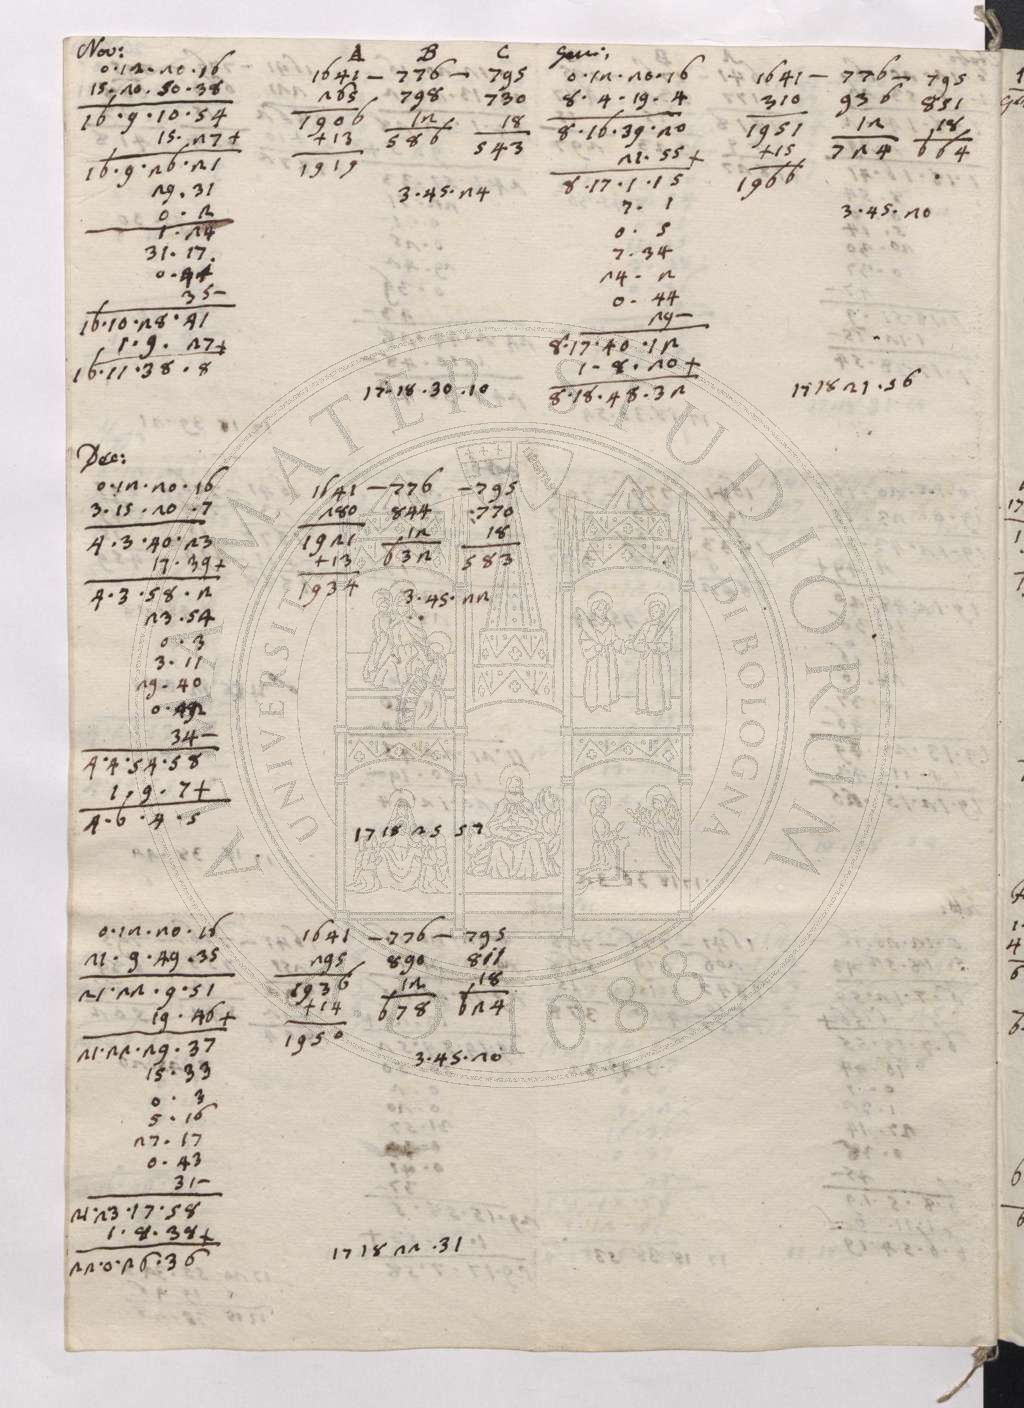 Nov:
0·12·20·16
15·20·50·38
16·9·10·54
15·27+
16·9·26·21
29·31
0·2
1·24
31·17
0·44
35-
16·10·28·41
1·9·27+
16·11·38·8
A B C
1641 — 776 — 795
265 798 730
1906 12 18
+13 586 543
1919
3·45·24
17·18·30·10
Gen:
0·12·20·16
8·4·19·4
8·16·39·20
21·55+
8·17·1·15
7·1
0·5
7·34
24·2
0·44
29-
8·17·40·12
1·8·20+
8·18·48·32
1641 — 776 — 795
310 936 851
1951 12 18
+15 724 664
1966
3·45·20
17 18 21·56
Dec:
0·12·20·16
3·15·20·7
4·3·40·23
17·39+
4·3·58·2
23·54
0·3
3·11
29·40
0·42
34-
4·4·54·58
1·9·7+
4·6·4·5
1641 — 776 — 795
280 844 770
1921 12 18
+13 632 583
1934
3·45·22
17 18 25 57
0·12·20·16
21·9·49·35
21·22·9·51
19·46+
21·22·29·37
15·33
0·3
5·16
27·17
0·43
31-
21·23·17·58
1·8·38+
22·0·26·36
1641 — 776 — 795
295 890 811
1936 12 18
+14 678 624
1950
3·45·20
17 18 22·31
ALMA MATER STUDIORUM
UNIVERSITÀ DI BOLOGNA
A.D. 1088